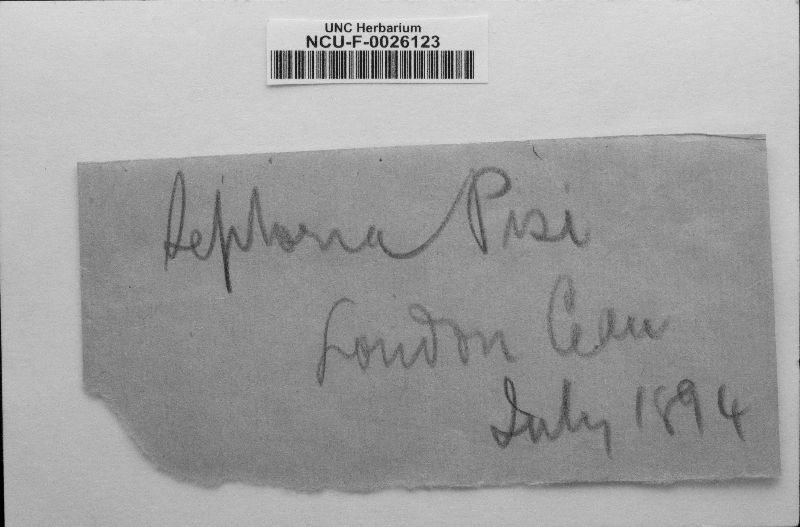 UNC Herbarium
NCU-F-0026123
Septoria Pisi
London Can
July 1894